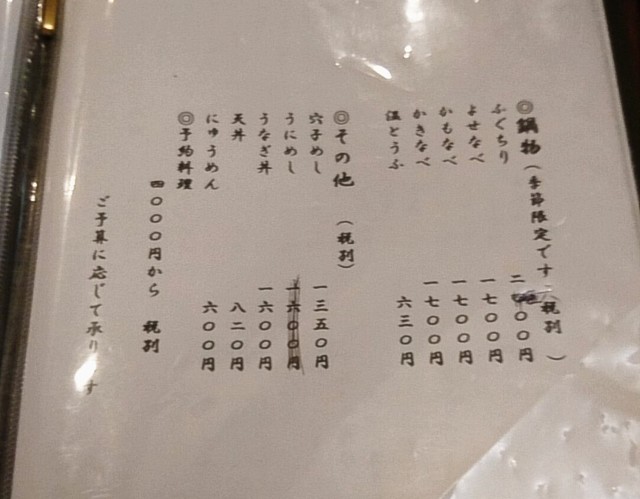 ◎鍋物（季節限定です）（税別）
ふぐちり 二 〇〇円
よせなべ 一七〇〇円
かもなべ 一七〇〇円
かきなべ 一七〇〇円
温とうふ 六三〇円
◎その他 （税別）
穴子めし 一三五〇円
うにめし 一六〇〇円
うなぎ丼 一六〇〇円
天丼 八二〇円
にゅうめん 六〇〇円
◎予約料理
四〇〇〇円から 税別
ご予算に応じて承り す